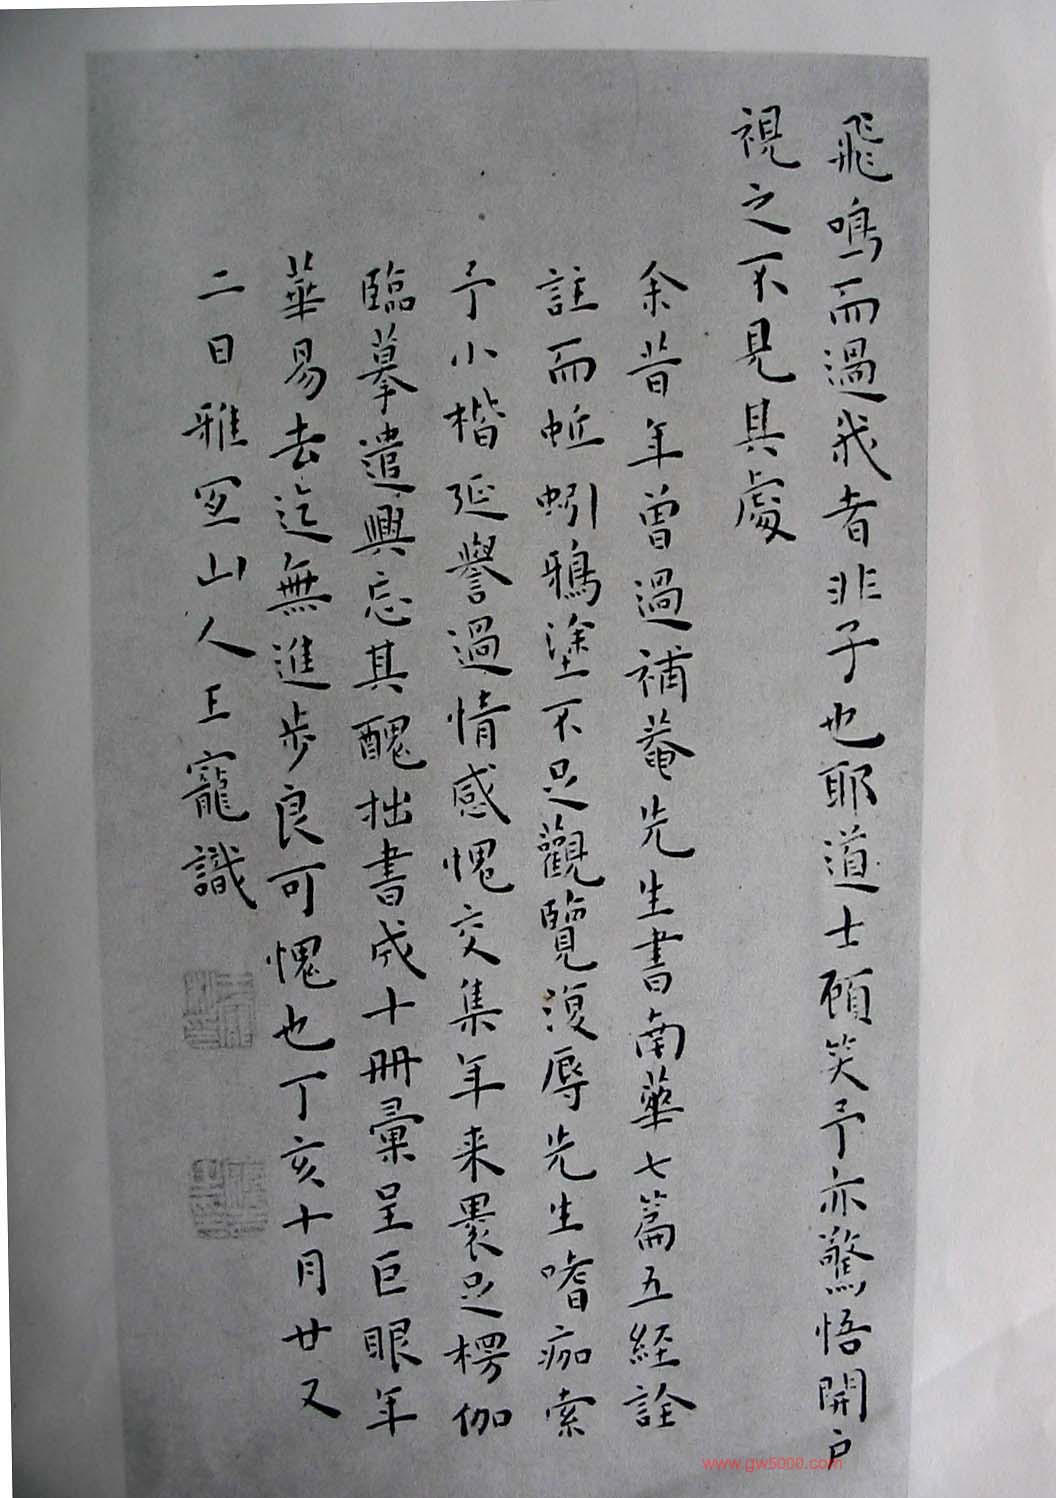 飛鳴而過我者非子也耶道士顧笑予亦驚悟開户
視之不見其處
余昔年曾過補菴先生書南華七篇五經詮
註而蚯蚓鴉塗不足觀覽復辱先生嗜痂索
予小楷延譽過情感愧交集年来裹足楞伽
臨摹遣興忘其醜拙書成十冊彙呈巨眼年
華易去迄無進步良可愧也丁亥十月廿又
二日雅宜山人王寵識
www.gw5000.com